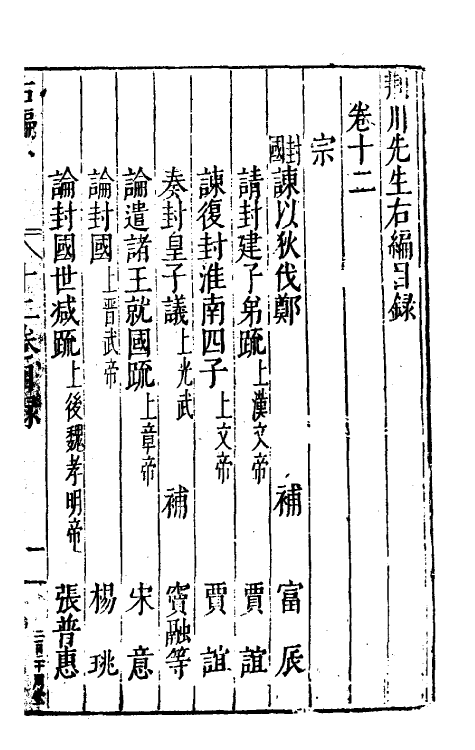 荆川先生右編目録
卷十二
宗
封國
諫以狄伐鄭 補 富辰
請封建子弟疏 上漢文帝 賈誼
諫復封淮南四子 上文帝 賈誼
奏封皇子議 上光武 補 竇融等
論遣諸王就國疏 上章帝 宋意
論封國 上晉武帝 楊珧
論封國世减疏 上後魏孝明帝 張普惠
右編 十二卷目録 一